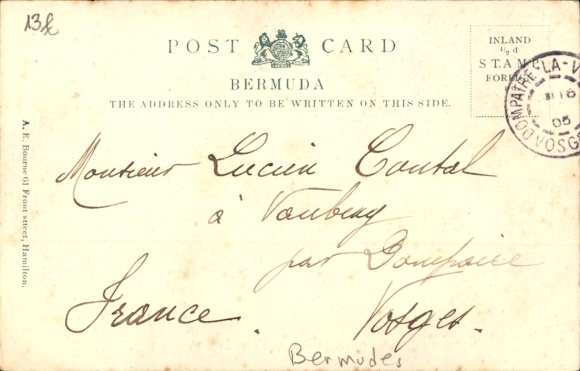 13
POST CARD
BERMUDA
THE ADDRESS ONLY TO BE WRITTEN ON THIS SIDE.
INLAND
½d
STAMP
A. E. Bourne 61 Front street, Hamilton.
DOMPAIRE-LA-V
18
05
VOSGE
Monsieur Lucien Contal
à
par Dompaire
France. Vosges.
Bermudes